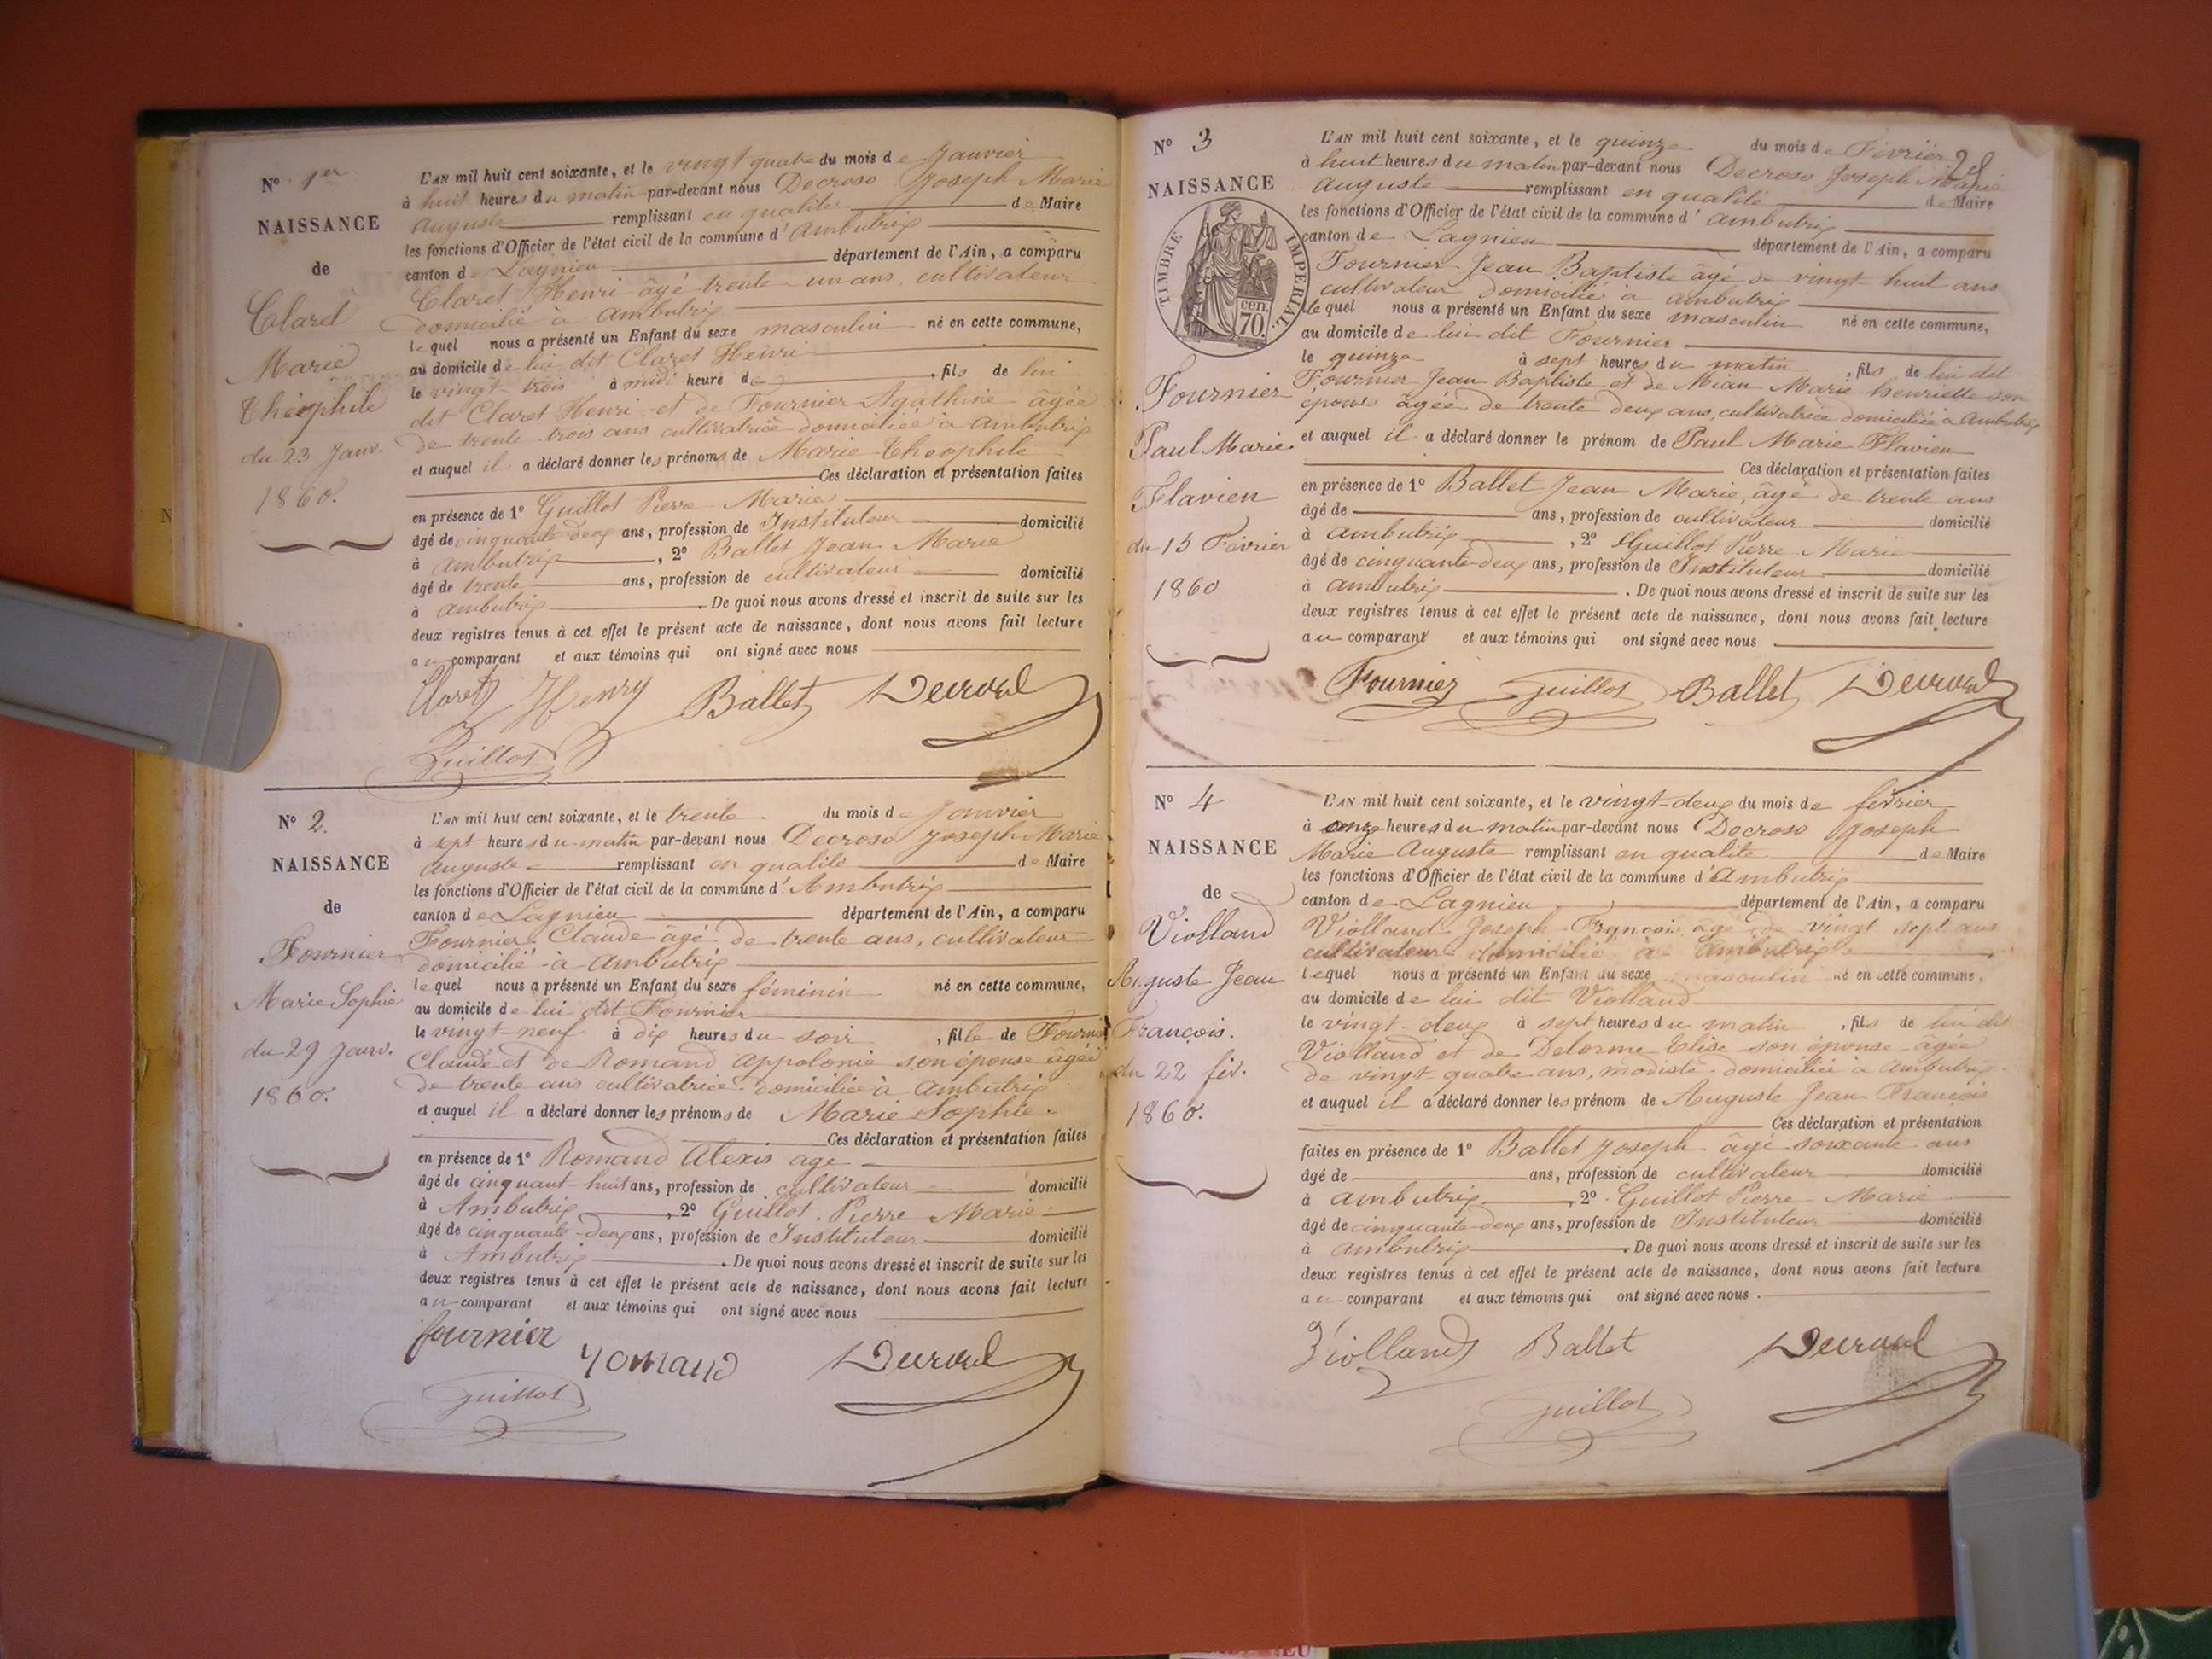 N° 1er
NAISSANCE
de
Claret
Marie
Théophile
du 23 Janv.
1860.
L'AN mil huit cent soixante, et le vingt quatre du mois de Janvier
à huit heures du matin par-devant nous Decroso Joseph Marie
Auguste remplissant en qualité de Maire
les fonctions d'Officier de l'état civil de la commune d'Ambutrix
canton de Lagnieu département de l'Ain, a comparu
Claret Henri âgé trente un ans, cultivateur
domicilié à Ambutrix
lequel nous a présenté un Enfant du sexe masculin né en cette commune,
au domicile de lui dit Claret Henri
le vingt trois à midi heure d , fils de lui
dit Claret Henri et de Fournier Agathine âgée
de trente trois ans cultivatrice domiciliée à Ambutrix
et auquel il a déclaré donner les prénoms de Marie Théophile
Ces déclaration et présentation faites
en présence de 1° Guillot Pierre Marie
âgé de cinquante deux ans, profession de Instituteur domicilié
à Ambutrix , 2° Ballet Jean Marie
âgé de trente ans, profession de cultivateur domicilié
à Ambutrix . De quoi nous avons dressé et inscrit de suite sur les
deux registres tenus à cet effet le présent acte de naissance, dont nous avons fait lecture
au comparant et aux témoins qui ont signé avec nous
Claret Henry Ballet
Guillot
N° 2.
NAISSANCE
de
Fournier
Marie Sophie
du 29 Janv.
1860.
L'AN mil huit cent soixante, et le trente du mois de Janvier
à sept heures du matin par-devant nous Decroso Joseph Marie
Auguste remplissant en qualité de Maire
les fonctions d'Officier de l'état civil de la commune d'Ambutrix
canton de Lagnieu département de l'Ain, a comparu
Fournier Claude âgé de trente ans, cultivateur
domicilié à Ambutrix
lequel nous a présenté un Enfant du sexe féminin né en cette commune,
au domicile de lui dit Fournier
le vingt-neuf à dix heures du soir , fille de Fournier
Claude et de Romand Appolonie son épouse âgée
de trente ans cultivatrice domiciliée à Ambutrix
et auquel il a déclaré donner les prénoms de Marie Sophie.
Ces déclaration et présentation faites
en présence de 1° Romand Alexis age
âgé de cinquant huit ans, profession de cultivateur domicilié
à Ambutrix , 2° Guillot Pierre Marie
âgé de cinquante-deux ans, profession de Instituteur domicilié
à Ambutrix . De quoi nous avons dressé et inscrit de suite sur les
deux registres tenus à cet effet le présent acte de naissance, dont nous avons fait lecture
au comparant et aux témoins qui ont signé avec nous
fournier
romand
Guillot
28
N° 3
NAISSANCE
de
TIMBRE IMPERIAL
cen.
70.
Fournier
Paul Marie
Flavien
du 15 Février
1860
L'AN mil huit cent soixante, et le quinze du mois de Février
à huit heures du matin par-devant nous Decroso Joseph Marie
Auguste remplissant en qualité de Maire
les fonctions d'Officier de l'état civil de la commune d'Ambutrix
canton de Lagnieu département de l'Ain, a comparu
Fournier Jean Baptiste âgé de vingt huit ans
cultivateur domicilié à Ambutrix
lequel nous a présenté un Enfant du sexe masculin né en cette commune,
au domicile de lui dit Fournier
le quinze à sept heures du matin , fils de lui dit
Fournier Jean Baptiste et de Mian Marie henriette son
épouse âgée de trente deux ans, cultivatrice domiciliée à Ambutrix
et auquel il a déclaré donner le prénom de Paul Marie Flavien
Ces déclaration et présentation faites
en présence de 1° Ballet Jean Marie, âgé de trente ans
âgé de ans, profession de cultivateur domicilié
à Ambutrix , 2° Guillot Pierre Marie
âgé de cinquante-deux ans, profession de Instituteur domicilié
à Ambutrix . De quoi nous avons dressé et inscrit de suite sur les
deux registres tenus à cet effet le présent acte de naissance, dont nous avons fait lecture
au comparant et aux témoins qui ont signé avec nous
Fournier Guillot Ballet
N° 4
NAISSANCE
de
Violland
Auguste Jean
François.
du 22 fév.
1860.
L'AN mil huit cent soixante, et le vingt-deux du mois de février
à onze heures du matin par-devant nous Decroso Joseph
Marie Auguste remplissant en qualité de Maire
les fonctions d'Officier de l'état civil de la commune d'Ambutrix
canton de Lagnieu département de l'Ain, a comparu
Violland Joseph François âgé de vingt sept ans
cultivateur domicilié à Ambutrix
lequel nous a présenté un Enfant du sexe masculin né en cette commune,
au domicile de lui dit Violland
le vingt-deux à sept heures du matin , fils de lui dit
Violland et de Delorme Elise son épouse âgée
de vingt quatre ans, modiste domiciliée à Ambutrix.
et auquel il a déclaré donner les prénom de Auguste Jean François
Ces déclaration et présentation
faites en présence de 1° Ballet Joseph âgé soixante ans
âgé de ans, profession de cultivateur domicilié
à Ambutrix , 2° Guillot Pierre Marie
âgé de cinquante-deux ans, profession de Instituteur domicilié
à Ambutrix . De quoi nous avons dressé et inscrit de suite sur les
deux registres tenus à cet effet le présent acte de naissance, dont nous avons fait lecture
au comparant et aux témoins qui ont signé avec nous.
Violland Ballet
Guillot